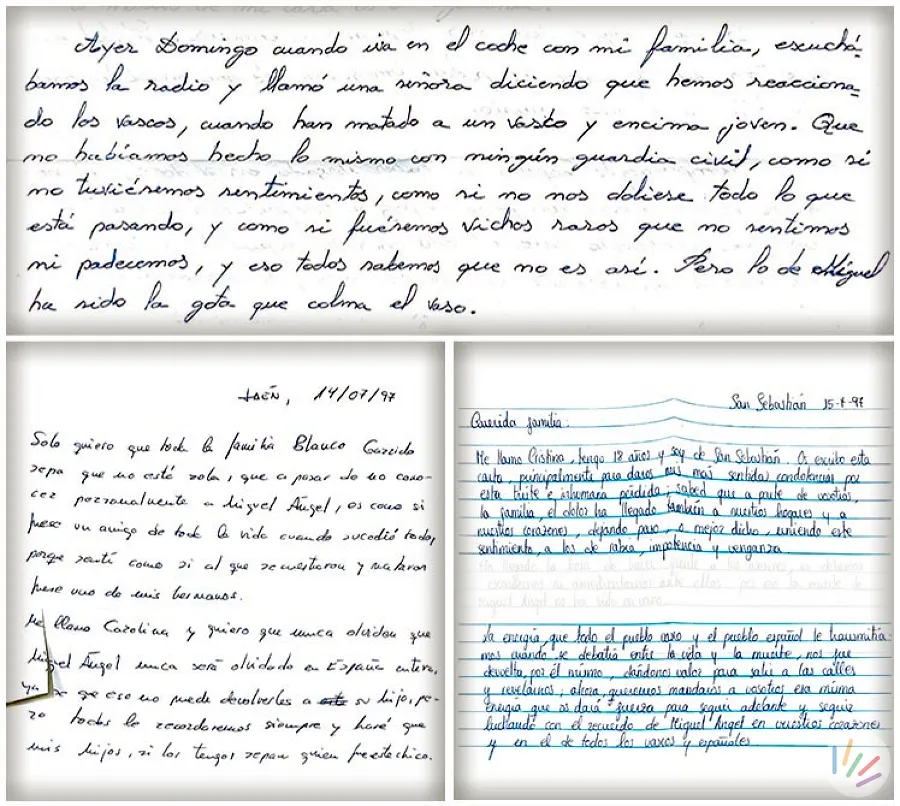 Ayer Domingo cuando iva en el coche con mi familia, escuchá-
bamos la radio y llamó una señora diciendo que hemos reacciona-
do los vascos, cuando han matado a un vasco y encima joven. Que
no habíamos hecho lo mismo con ningún guardia civil, como si
no tuviéremos sentimientos, como si no nos doliese todo lo que
está pasando, y como si fuéremos vichos raros que no sentimos
ni padecemos, y eso todos sabemos que no es así. Pero lo de Miguel
ha sido la gota que colma el vaso.
JAÉN, 14/07/97
Solo quiero que toda la familia Blanco Garrido
sepa que no está sola, que a pesar de no cono-
cer personalmente a Miguel Ángel, es como si
fuese un amigo de toda la vida cuando sucedió todo,
porque sentí como si al que secuestaron y mataron
fuese uno de mis hermanos.
Me llamo Carolina y quiero que nunca olviden que
Miguel Ángel nunca será olvidado en España entera,
ya que eso no puede devolverles a su hijo, pe-
ro todos lo recordaremos siempre y haré que
mis hijos, si los tengo, sepan quien fue este chico.
San Sebastián 15-7-97
Querida familia:
Me llamo Cristina, tengo 18 años y soy de San Sebastián. Os escribo esta
carta, principalmente para daros mis más sentidas condolencias por
esta triste e inhumana pérdida; sabed que a parte de vosotros,
la familia, el dolor ha llegado también a nuestros hogares y a
nuestros corazones, dejando paso, o mejor dicho, uniendo este
sentimiento, a los de rabia, impotencia y venganza.
Miguel Angel no ha sido en vano
La energía, que todo el pueblo vasco y el pueblo español le transmitía-
mos cuando se debatía entre la vida y la muerte, nos fue
devuelta, por él mismo, dándonos valor para salir a las calles
y revelarnos, ahora, queremos mandaros a vosotros esa misma
energía que os dará fuerza para seguir adelante y seguir
luchando con el recuerdo de Miguel Angel en vuestros corazones
y en el de todos los vascos y españoles.